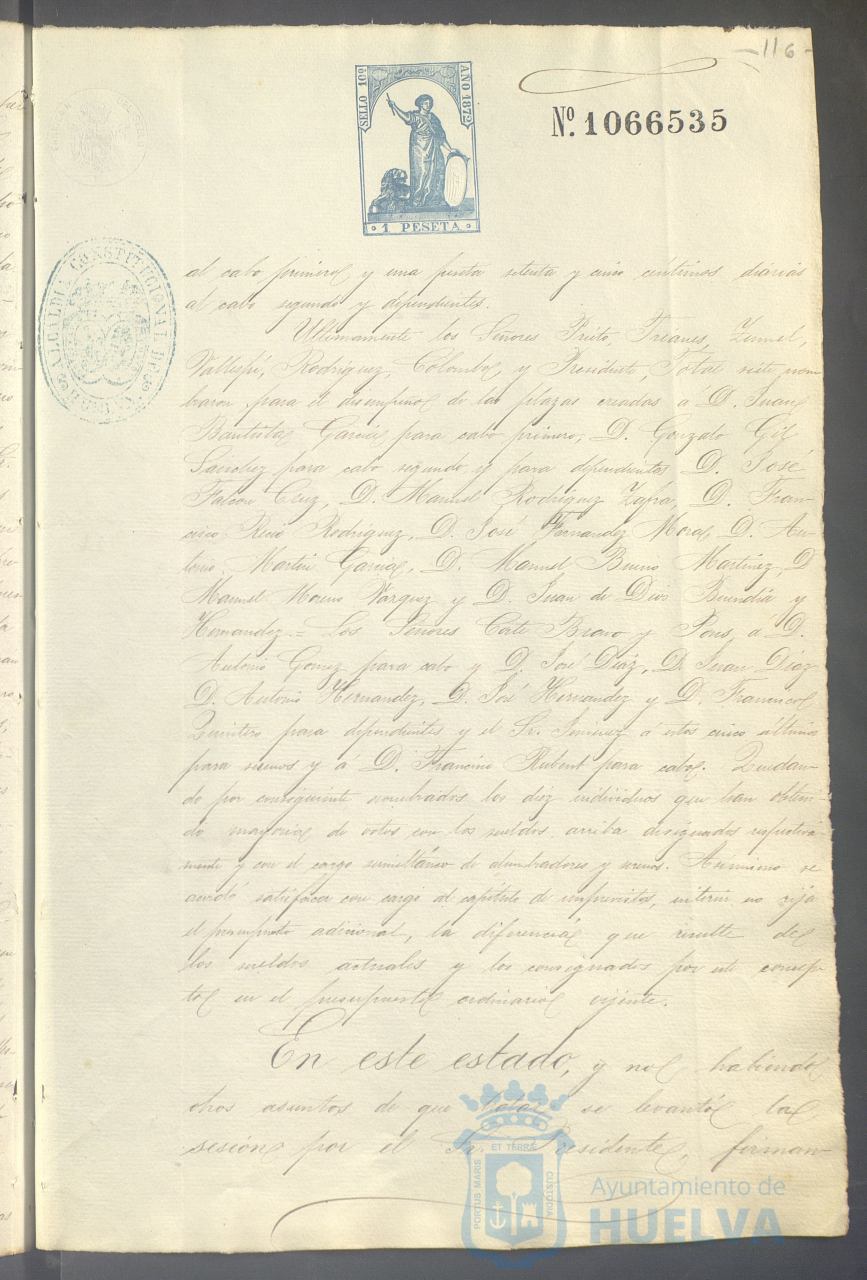 116
SELLO 10º AÑO 1872
1 PESETA
Nº 1066535
ALCALDIA CONSTITUCIONAL DE HUELVA
al cabo primero y una peseta setenta y cinco centimos diarias
al cabo segundo y dependientes.
Ultimamente los Señores Prieto, Trianes,
Vallespí, Rodriguez, Colombo, y Presidente, Total siete nom
braron para el desempeño de las plazas creadas á D. Juan
Bautista Garcia para cabo primero, D. Gonzalo Gil
Sanchez para cabo segundo y para dependientes D. José
Falcon Cruz, D. Manuel Rodriguez Zafra, D. Fran-
cisco Recio Rodriguez, D. José Fernandez Mora, D. An-
tonio Martin Garcia, D. Manuel Bueno Martinez, D
Manuel Moreno Vazquez y D. Juan de Dios Buendia y
Hernandez.= Los Señores Corte Bravo y Pons, á D.
Antonio Gomez para cabo y D. José Diaz, D. Juan Diaz
D. Antonio Hernandez, D. José Hernandez y D. Francisco
Quintero para dependientes y el Sr. Jimenez á estos cinco últimos
para serenos y á D. Francisco Rubent para cabo. Quedan-
do por consiguiente nombrados los diez individuos que han obteni-
do mayoria de votos con los sueldos arriba designados respectiva-
mente y con el cargo simultáneo de alumbradores y serenos. Asimismo se
acordó satisfacer con cargo al capítulo de imprevistos, interin no rija
el presupuesto adicional, la diferencia que resulte de
los sueldos actuales y los consignados por este concep-
to en el presupuesto ordinario vijente.
En este estado, y no habiendo
otros asuntos de que tratar se levantó la
sesión por el Sr. Presidente, firman-
ET TERRÆ
PORTUS MARIS
CUSTODIA
Ayuntamiento de
HUELVA